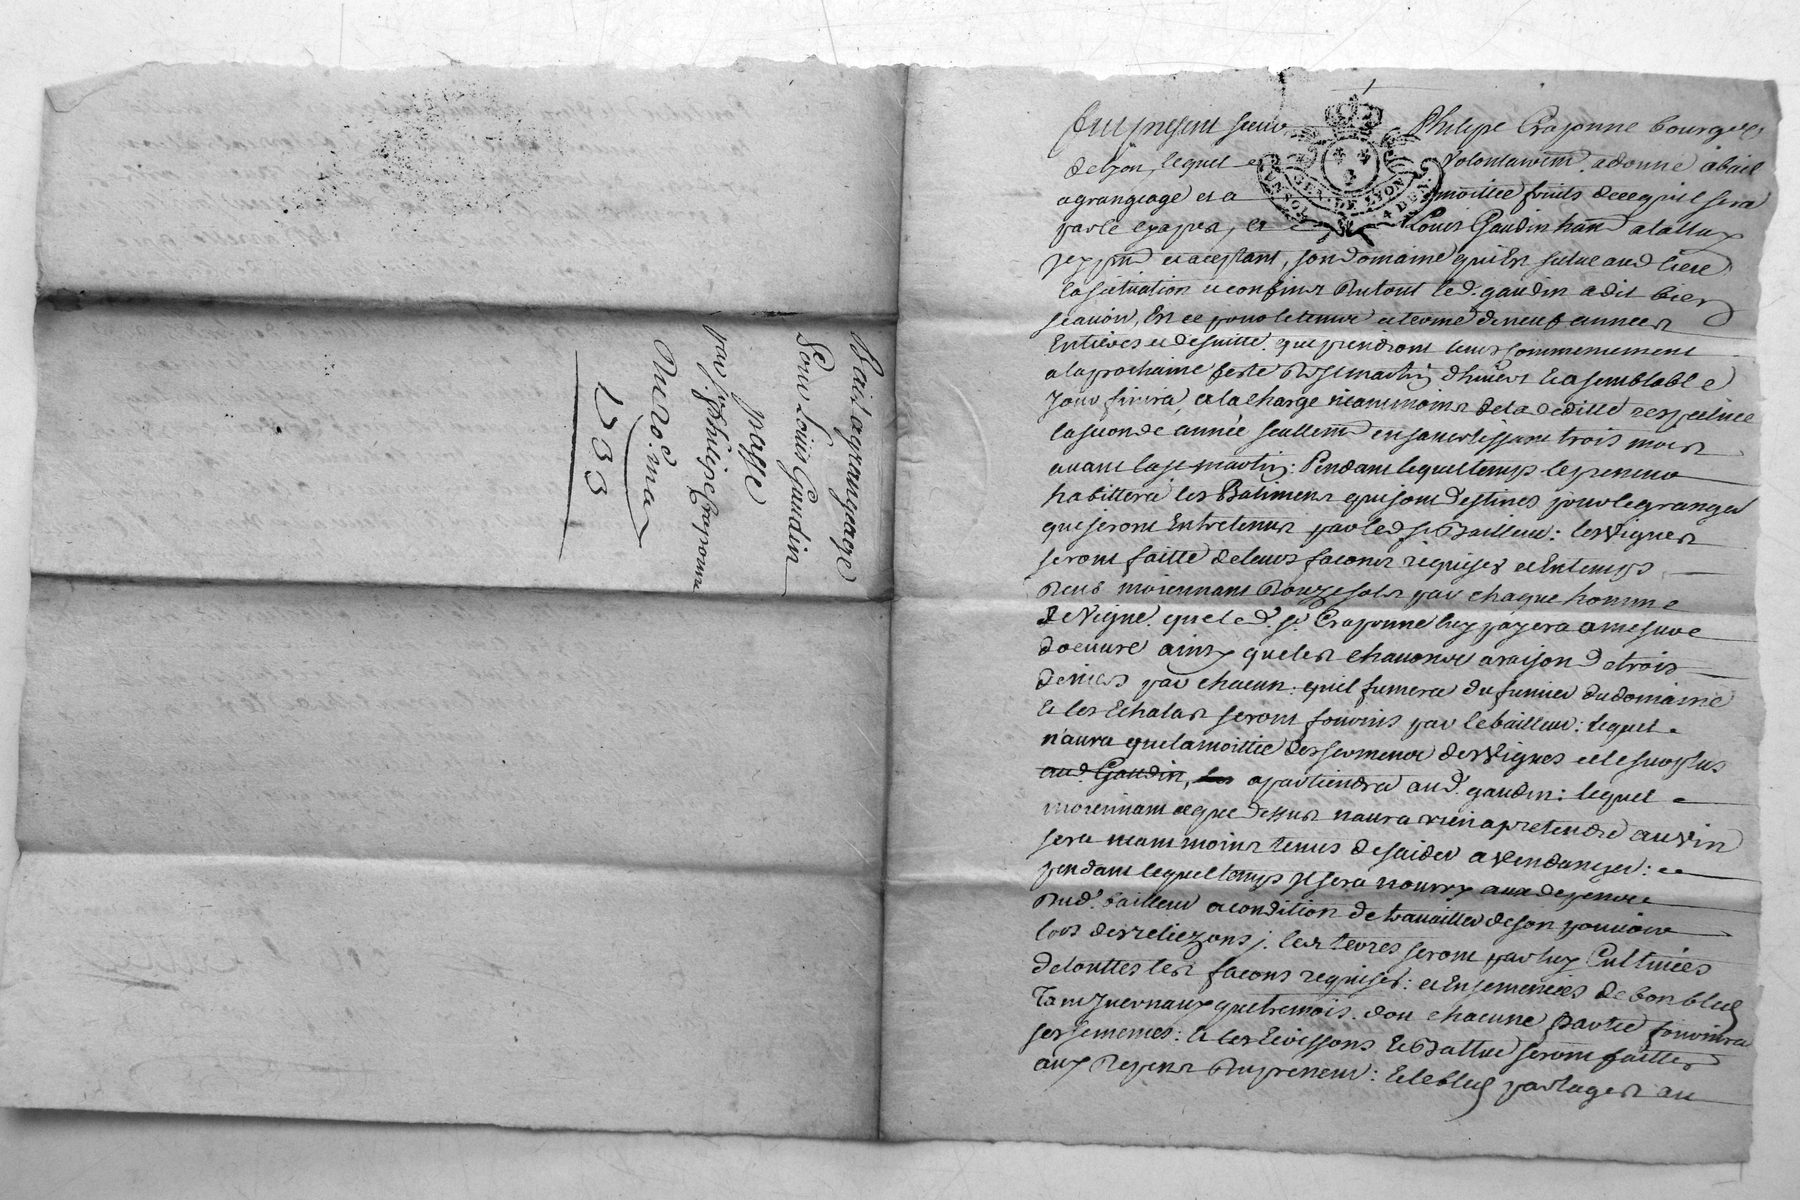 Bail a grangeage
Pour Louis Gaudin
passé
par Sr. Philipe Crayonne
Numero. ma
1733
GEN. DE LYON
Fut present sieur Philipe Crayonne bourgeois
de Lyon, lequel volontairem.t a donné a bail
a grangeage et a moittié fruits de ce quil sera
parlé cy apres, a Louis Gaudin
et aceptant, son domaine qui est situé aud. lieu
la scituation et confins du tout led. gaudin a dit bien
scavoir, et ce pour le tems et terme de neuf années
Entieres et de suitte. que prendront leurs commencement
a la prochaine feste de St. martin d'hiver et a semblable
Jour finira, et a la charge neanmoins de la deditte respective
la seconde année seullem.t en savertissant trois mois
avant la st. martin: Pendant lequel temps le preneur
habittera les Batimens qui sont destinés pour le granger
qui seront Entretenus par led. sr. Bailleur: les Vignes
seront faitte de leurs facons requises et En temps
deub moiennant douze sols par chaque homme
de Vigne. que led. sr. Crayonne luy payera a mesure
d'oeuvre ainsy que les a raison de trois
deniers par chacun: quil fumera du fumier du domaine
Et les Echalas seront fournis par le bailleur: lequel
n'aura que la moittié des sermens des Vignes et le surplus
aud. Gaudin, apartiendra aud. gaudin: lequel
moiennant ce que dessus n'aura rien a pretendre au vin
sera neanmoins tenus de saider a Vendanger:
pendant lequel temps Il sera nourry aux depens
dud. bailleur a condition de travailler de son pouvoir
lors des : les terres seront par luy Cultivées
de touttes les facons requises: et Ensemencées de bon bled
Tant yvernaux que tremois. dont chacune partie fournira
ses semences: et les Ecossons Et Battue seront faittes
aux depens du preneur: Et le bled partagés au